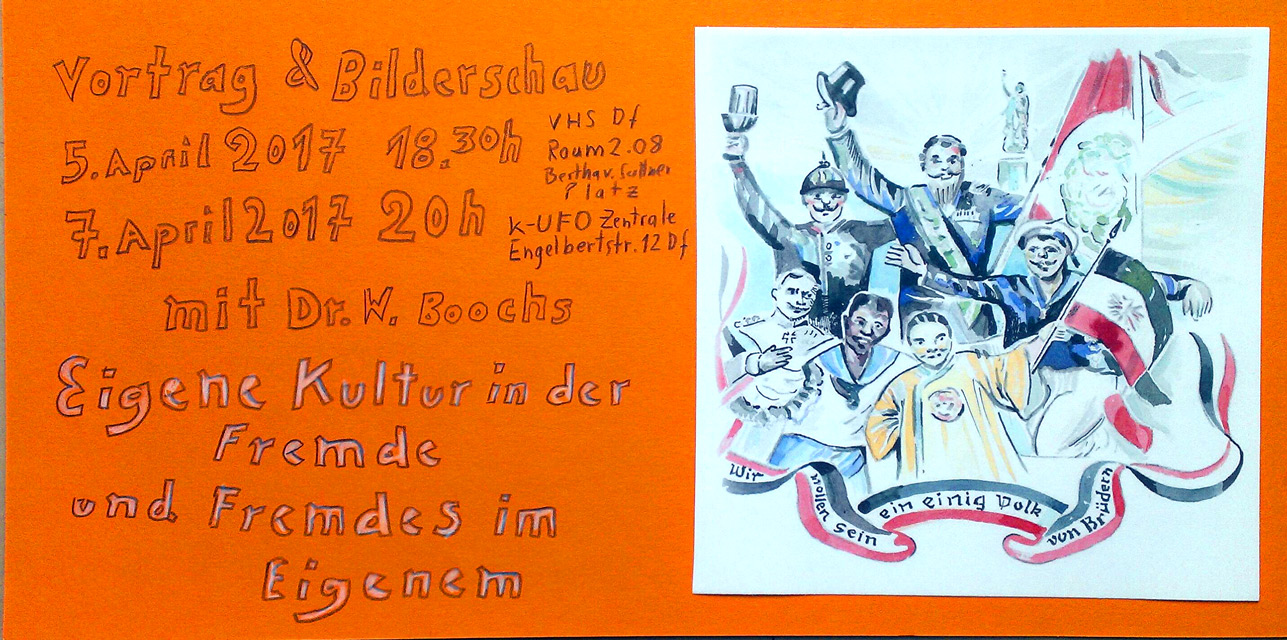 Vortrag & Bilderschau
5. April 2017 18.30h
VHS Df
Raum 2.08
Bertha v. Suttner
Platz
7. April 2017 20h
K-UFO Zentrale
Engelbertstr. 12 Df
mit Dr. W. Boochs
Eigene Kultur in der
Fremde
und Fremdes im
Eigenem
Wir
wollen sein
ein einig Volk
von Brüdern